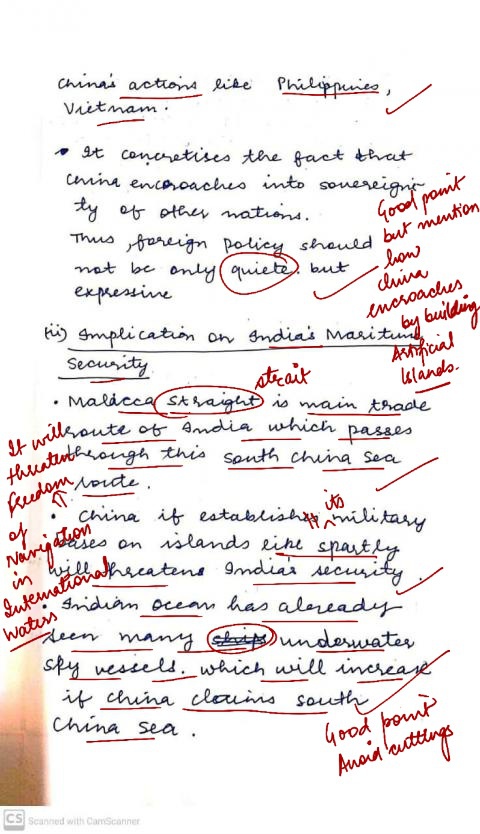 China's actions like Philippines,
Vietnam.
• It concretises the fact that
China encroaches into sovereigni-
ty of other nations.
Thus, foreign policy should
not be only quiete. but
expressive
Good point
but mention
how
China
encroaches
by building
Artificial
Islands.
(ii) Implication on India's Maritime
Security
strait
• Malacca straight is main trade
route of India which passes
through this south China sea
route.
It will
threaten
freedom
of
Navigation
in
International
waters
its
• China if establish military
bases on islands like spartly
will threatens India's security.
• Indian ocean has already
seen many ships underwater
spy vessels. which will increase
if China claims south
China sea.
Good point
Avoid cuttings
CS Scanned with CamScanner